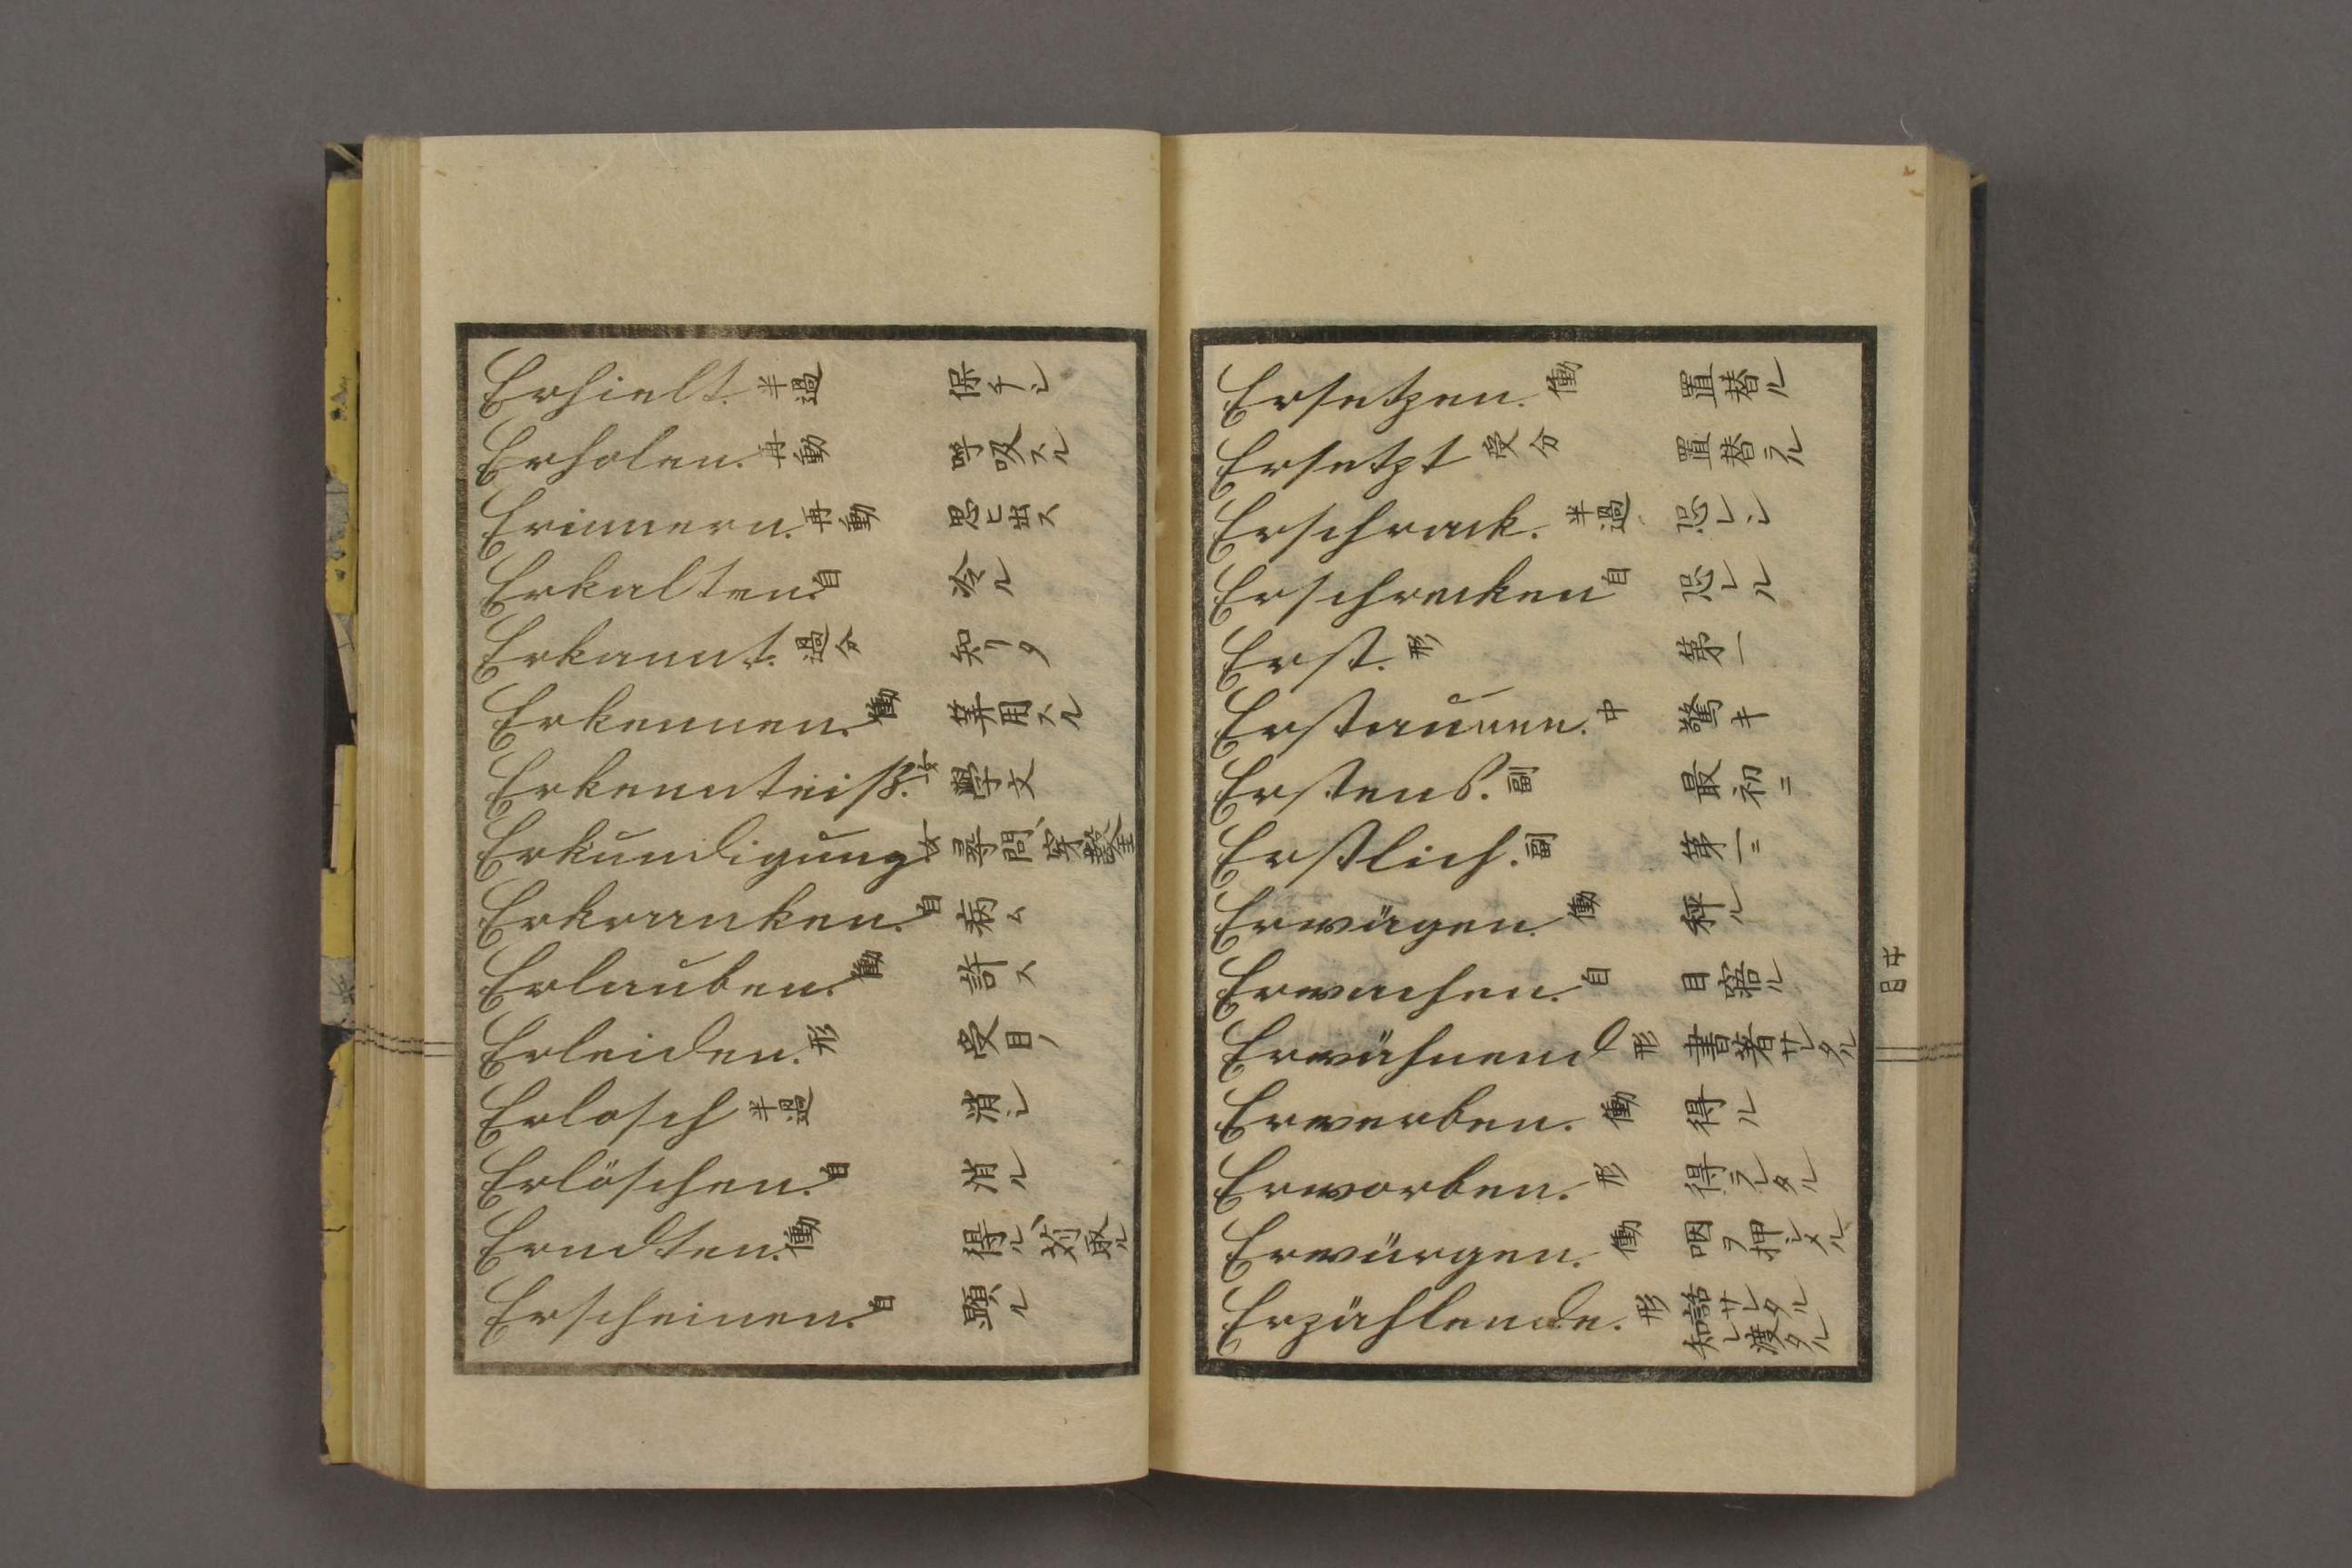 Erhielt. 半過 保チシ
Erholen. 再動 呼吸スル
Erinnern. 再動 思ヒ出ス
Erkalten. 自 冷ル
Erkannt. 過分 知リタ
Erkennen. 働 筭用スル
Erkenntniß. 女 學文
Erkundigung 女 尋問、穿鑿
Erkranken. 自 病ム
Erlauben. 働 許ス
Erleiden. 形
Erlosch 半過 消シ
Erlöschen. 自 消ル
Erndten. 働 得ル、苅取ル
Erscheinen. 自 顕ル
Ersetzen. 働 置替ル
Ersetzt 受分 置替ラル
Erschrack. 半過 恐レシ
Erschrecken 自 恐レル
Erst. 形 第一
Erstaunen. 中 驚キ
Erstens. 副 最初ニ
Erstlich. 副 第一ニ
Erwägen. 働 秤ル
Erwachen. 自 目寤ル
Erwähnend 形 書著サレタル
Erwerben. 働 得ル
Erworben. 形 得ラレタル
Erwürgen. 働 咽ヲ押シメル
Erzählende. 形 話サレタル 知レ渡タル